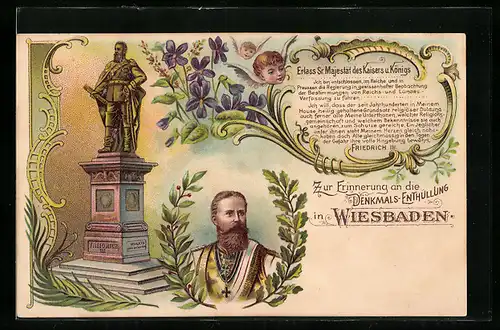 Erlass Sr. Majestät des Kaisers u. Königs
Ich bin entschlossen, im Reiche und in
Preussen die Regierung in gewissenhafter Beobachtung
der Bestimmungen von Reichs- und Landes-
Verfassung zu führen.
Ich will, dass der seit Jahrhunderten in Meinem
Hause heilig gehaltene Grundsatz religiöser Duldung
auch ferner alle Meine Unterthanen, welcher Religions-
gemeinschaft und welchem Bekenntnisse sie auch
angehören, zum Schutze gereiche. Ein Jeglicher
unter ihnen steht Meinem Herzen gleich nahe
haben doch Alle gleichmässig in den Tagen
der Gefahr ihre volle Hingebung bewährt.
FRIEDRICH III.
Zur Erinnerung an die
DENKMALS-ENTHÜLLUNG
in WIESBADEN.
FRIEDRICH